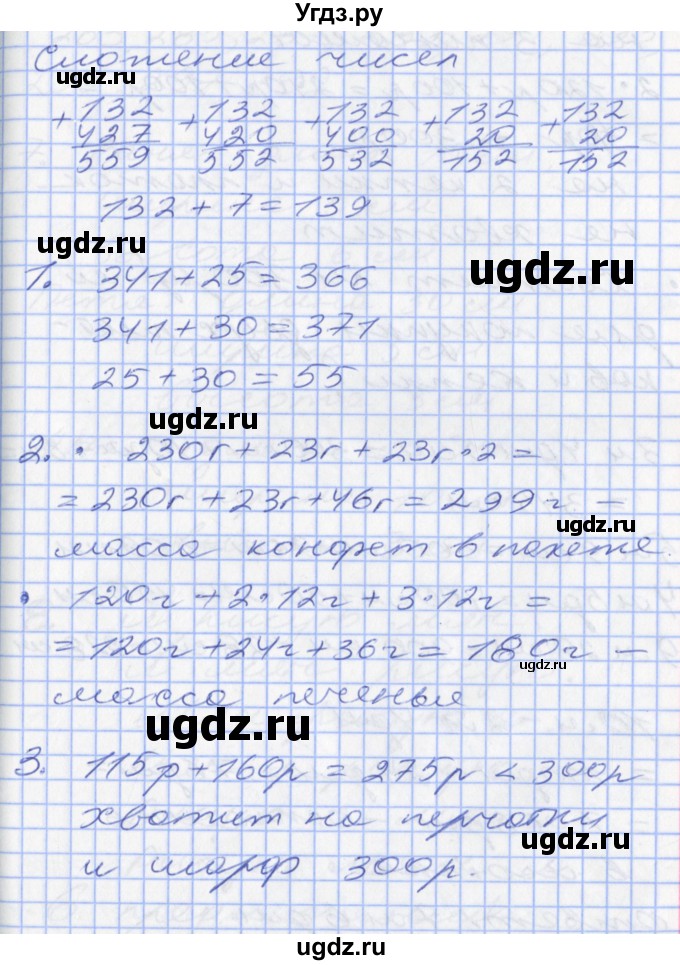 Угдз.ру
Сложение чисел
+132 +132 +132 +132 +132
427 420 400 20 20
559 552 532 152 152
132 + 7 = 139
1. 341 + 25 = 366
341 + 30 = 371
25 + 30 = 55
2. • 230г + 23г + 23г • 2 =
= 230г + 23г + 46г = 299г –
масса конфет в пакете.
• 120г + 2 • 12г + 3 • 12г =
= 120г + 24г + 36г = 180г –
масса печенья
3. 115р + 160р = 275р < 300р
хватит на перчатки
и шарф 300р.
ugdz.ru
ugdz.ru
ugdz.ru
ugdz.ru
ugdz.ru
ugdz.ru
ugdz.ru
ugdz.ru
ugdz.ru